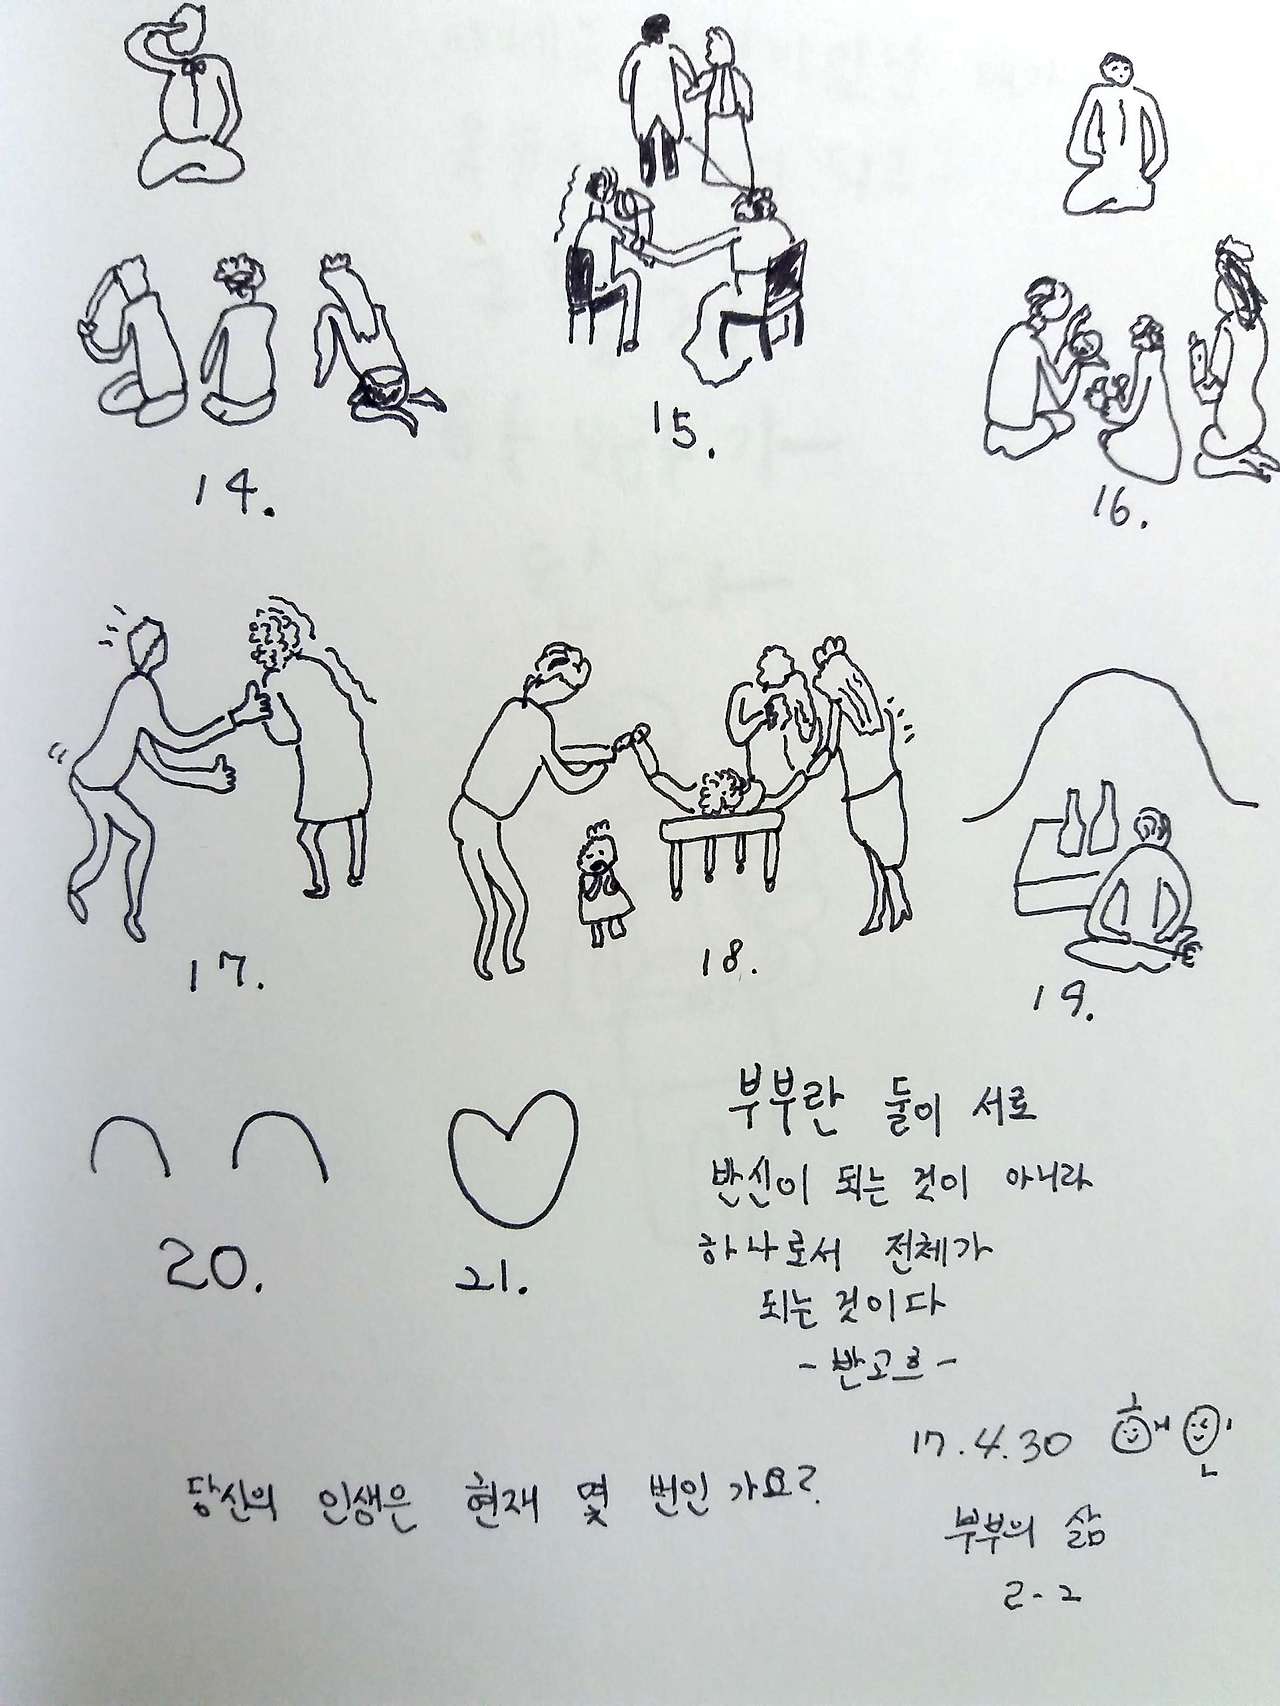 14.
15.
16.
17.
18.
19.
20.
21.
부부란 둘이 서로
반신이 되는 것이 아니라
하나로서 전체가
되는 것이다
- 반고흐 -
17.4.30 혜인
당신의 인생은 현재 몇 번인가요?
부부의 삶
2-2